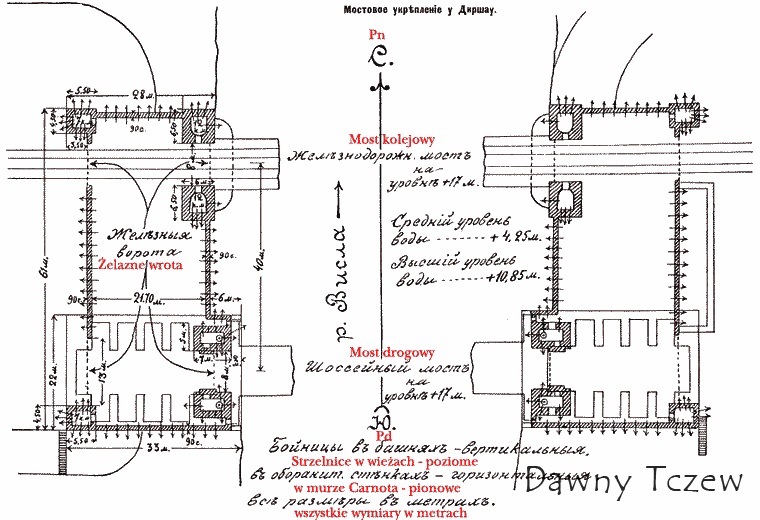 Мостовое укрѣпленіе у Диршау.
Pn
С.
5,50
28 м.
4,50
90с.
3,50
Most kolejowy
Желѣзнодорожн. мостъ
на
уровнѣ +17 м.
Средній уровень
воды ........ + 4,25м.
Высшій уровень
воды ........ +10,85м.
р. Висла
Желѣзныя
ворота
Żelazne wrota
61м.
40м.
90с.
90с.
21.70 м.
6 м.
22м.
13м.
5м.
7м.
8м.
Most drogowy
Шоссейный мостъ
на
уровнѣ +17м.
4,50
5,50
33 м.
90с.
Ю.
Pd
Бойницы въ башняхъ - вертикальныя,
Strzelnice w wieżach - poziome
въ оборонит. стѣнкахъ - горизонтальныя
w murze Carnota - pionowe
всѣ размѣры въ метрахъ.
wszystkie wymiary w metrach
Dawny Tczew